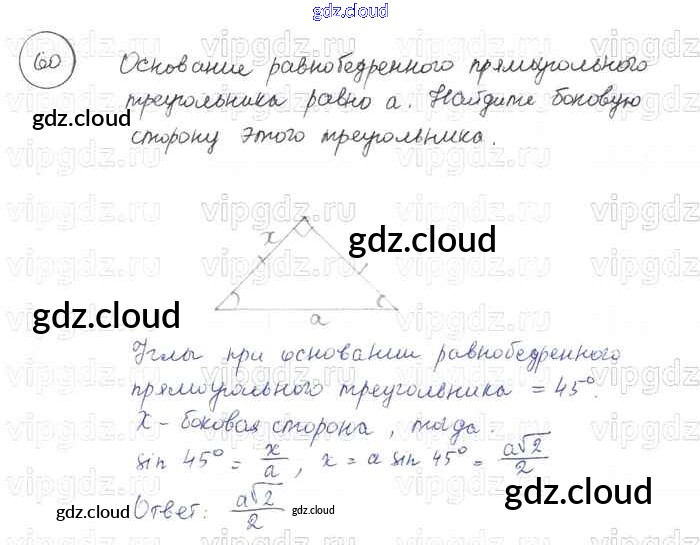 gdz.cloud
60
Основание равнобедренного прямоугольного
треугольника равно a. Найдите боковую
сторону этого треугольника.
gdz.cloud
vipgdz.ru
x
gdz.cloud
gdz.cloud
a
Углы при основании равнобедренного
прямоугольного треугольника = 45°.
X - боковая сторона, тогда.
sin 45° = x/a, x = a sin 45° = a√2/2
Ответ: a√2/2
gdz.cloud
gdz.cloud
gdz.cloud